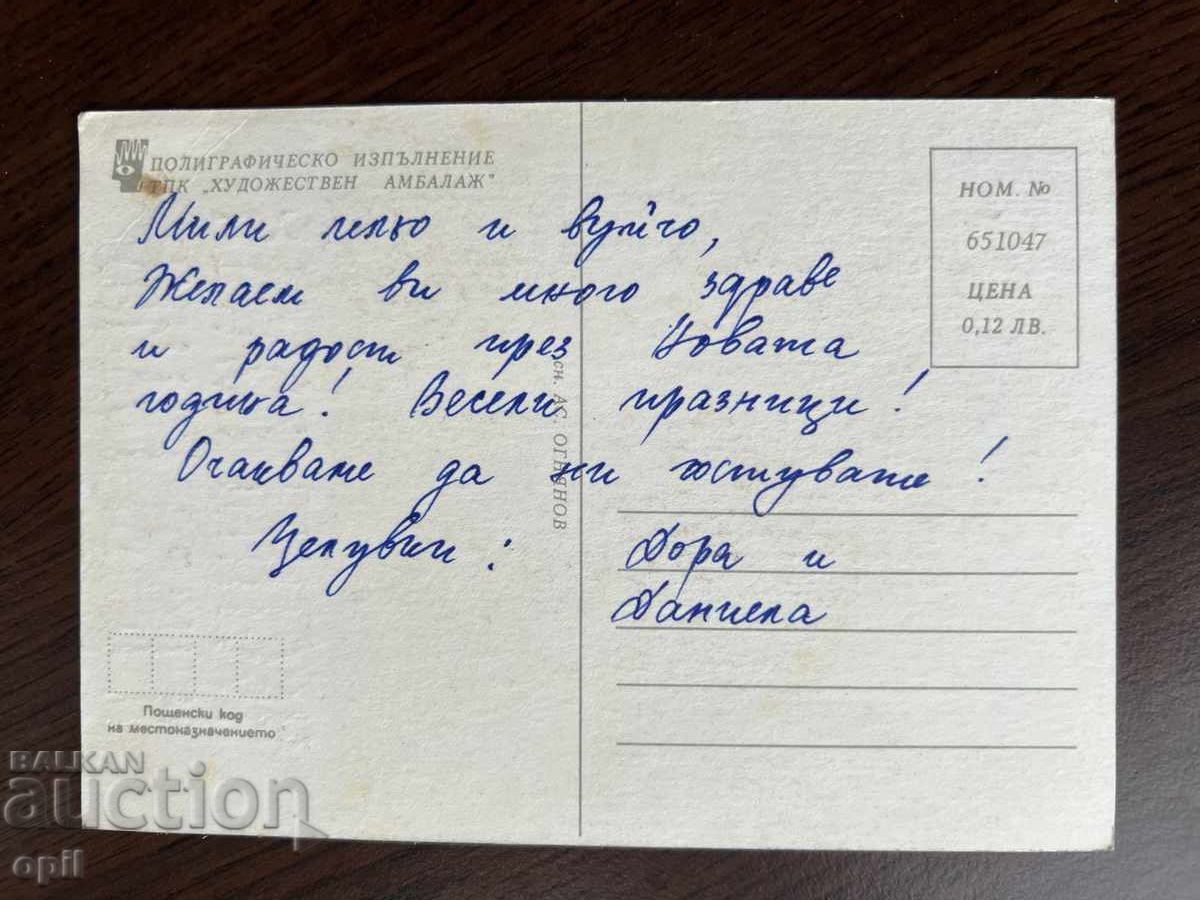 ПОЛИГРАФИЧЕСКО ИЗПЪЛНЕНИЕ
ТПК „ХУДОЖЕСТВЕН АМБАЛАЖ"
Мили лельо и вуйчо,
Желаем ви много здраве
и радост през Новата
година! Весели празници!
Очакваме да ни гостувате!
Целувки: Дора и
Даниела
НОМ. №
651047
ЦЕНА
0,12 ЛВ.
сн. АС. ОГНЯНОВ
Пощенски код
на местоназначението
BALKAN
auction
opil